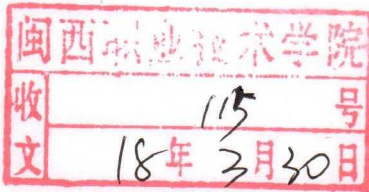 闽西职业技术学院
收文
115号
18年3月30日